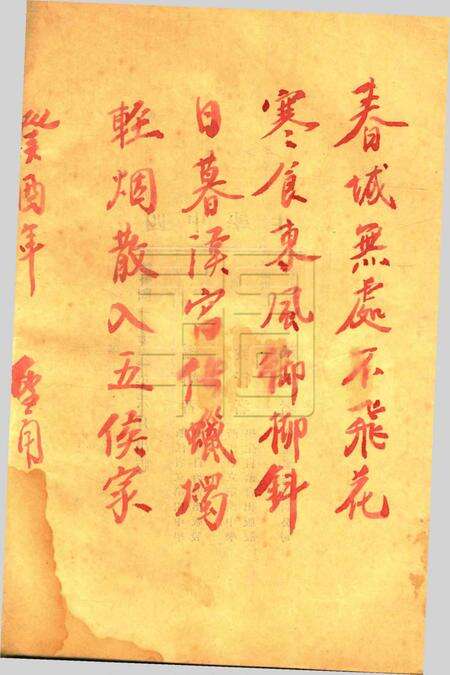 春城無處不飛花
寒食東風御柳斜
日暮漢宮传蠟燭
輕烟散入五侯家
癸酉年